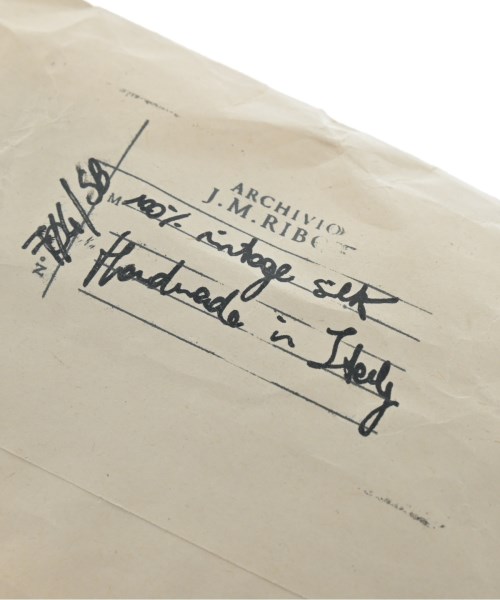 ARCHIVIO
J.M.RIBO
M 100% vintage silk
Handmade in Italy
N.